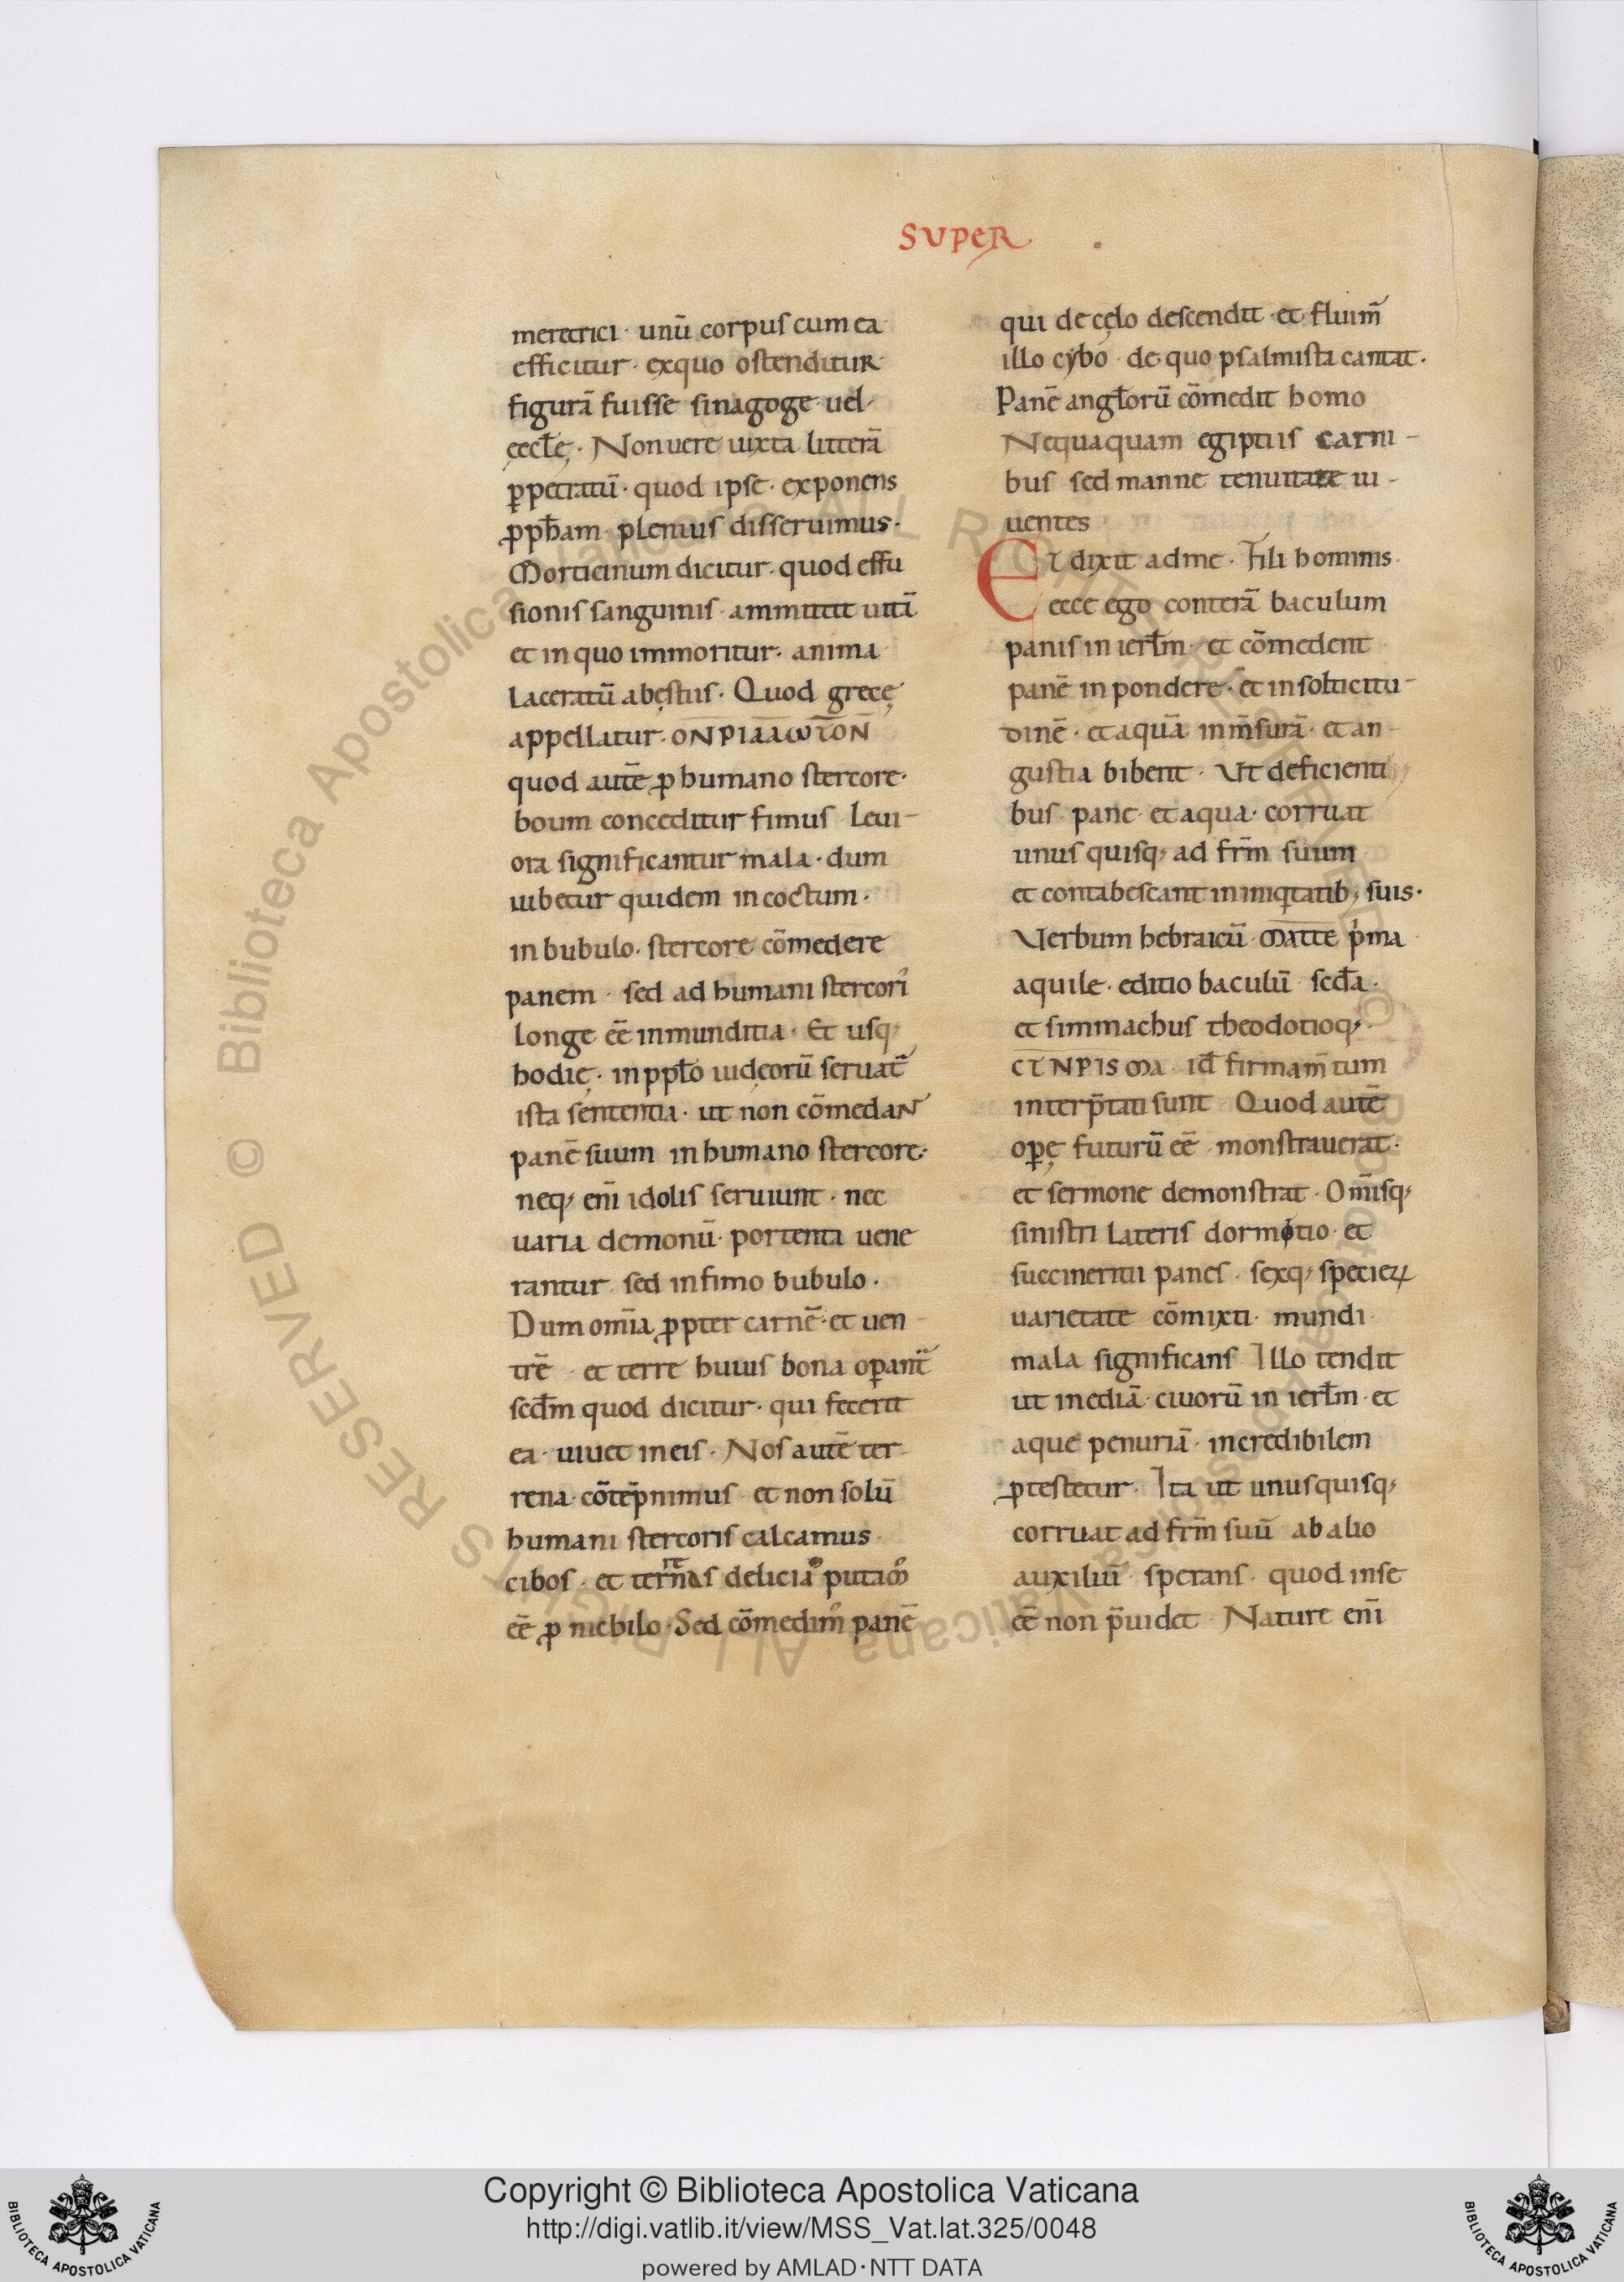 SUPER
meretrici · unū corpus cum ea
efficitur · exquo ostenditur
figurā fuisse sinagoge uel
ęcctę̄ · Non uere iuxta litterā
ꝑpetratū · quod ipse · exponens
ꝓpħam plenius disseruimus ·
Morticinum dicitur · quod effu
sionis sanguinis ammittit uitā
et in quo immoritur · anima
Laceratū abęstiis · Quod grecę
appellatur ·
quod autē ꝓ humano stercore ·
boum conceditur fimus Leui-
ora significantur mala · dum
iubetur quidem in coctum ·
in bubulo · stercore cōmedere
panem · sed ad humani stercori᾿
Longe eē inmunditia · Et usq;
hodię · in ppło iudęorū seruat᾿
ista sententia · ut non cōmedaN
panē suum in humano stercore ·
neq; eni̅ idolis seruiunt · nec
uaria demonū · portenta uene
rantur sed in fimo bubulo ·
Dum om̄ia ꝓpter carnē · et uen-
trē et terre huius bona oꝑant᾿
scđm quod dicitur · qui fecerit
ea · uiuet in eis · Nos autē ter-
rena · cōtēpnimus et non solū
humani stercoris calcamus
cibos · et delicia᾿ putam᾿
eē ꝓ nichilo · Sed cōmedim᾿ panē
qui de cęlo descendit · et fluim̄
illo cybo · de quo psalmista cantat ·
Panē angłorū cōmedit homo
Nequaquam egiptiis carni-
bus sed manne tenuitate ui-
uentes
Et dixit ad me · Fili hominis ·
ecce ego conterā baculum
panis in ierłm · et cōmedent
panē in pondere · et in sollicitu-
dinē · et aquā in m̄surā · et an-
gustia bibent · Ut deficienti
bus · pane · et aqua · corruat
unus quisq; ad fr̄m suum
et contabescant in iniqtatib; suis ·
Uerbum hebraicū · matte p᾿ma
aquile · editio baculū scđa ·
et simmachus theodotioq;
CTNPISMA · iđ firmam̄tum
interp̄tati sunt Quod autē
oꝑę futurū eē monstrauerat ·
et sermone demonstrat · Om̄isq;
sinistri Lateris dormitio · et
succineritii panes · sexq; specieꝝ
uarietate cōmixti · mundi
mala significans Illo tendit
ut inediā · ciuorū in ierłm · et
aque penuriā · incredibilem
ꝓtestetur · Ita ut unusquisq;
corruat ad fr̄m suū ab alio
auxiliū sperans · quod in se
eē non p̄uidet Nature eni̅
Copyright © Biblioteca Apostolica Vaticana
http://digi.vatlib.it/view/MSS_Vat.lat.325/0048
powered by AMLAD·NTT DATA
BIBLIOTECA APOSTOLICA VATICANA
BIBLIOTECA APOSTOLICA VATICANA
© Biblioteca Apostolica Vaticana ALL RIGHTS RESERVED
© Biblioteca Apostolica Vaticana ALL RIGHTS RESERVED